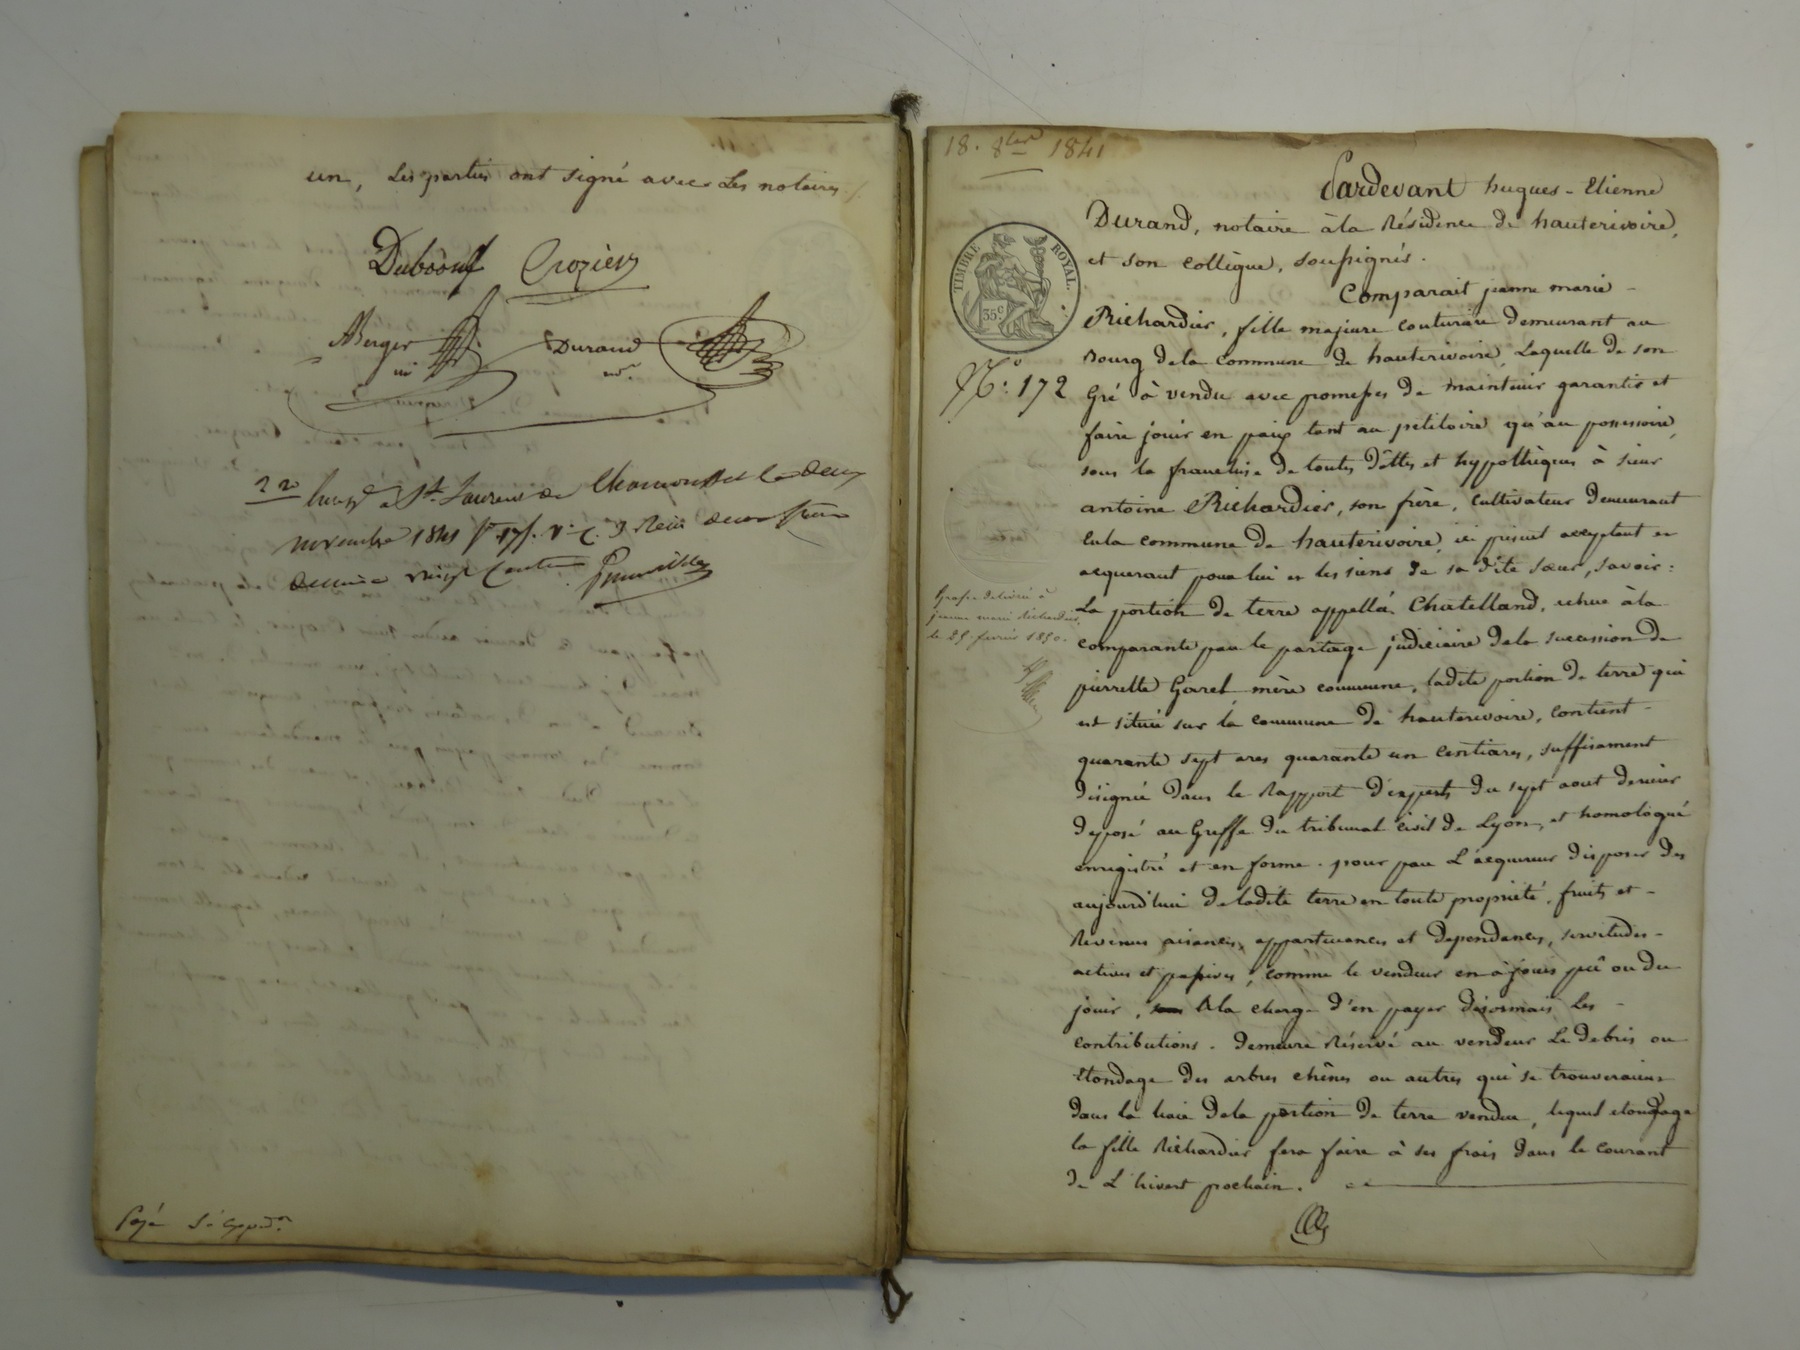 un, Les parties ont signé avec Les notaires./.
Duboeuf Crozier
ABerger
Durand
nre
22 Enregé à St Laurent de Chamousset le deux
novembre 1841 fo 171. Vo C. 9 Reçu deux francs
decime vingt centimes.
Payé
18. 8bre 1841
Pardevant hugues - Etienne
Durand, notaire à la Résidence de hauterivoire,
et son collègue, soussignés.
TIMBRE ROYAL.
35c
Comparait jeanne marie -
Richardier, fille majeure couturière demeurant au
Bourg de la commune de hauterivoire, Laquelle de son
No. 172
Gré à vendu avec promesses de maintenir garantir et
faire jouir en paix tant au petitoire qu'au possessoire,
sous la franchise de toutes dêttes et hypothèques à sieur
antoine Richardier, son frère, cultivateur demeurant
en la commune de hauterivoire, ici présent acceptant et
acquerant pour lui et les siens de sa dite sœur, savoir:
Grosse délivrée à
jeanne marie Richardier,
le 25 fevrier 1850.
La portion de terre appellée Chatelland, échue à la
comparante par le partage judiciaire de la succession de
pierrette Garel, mère commune, ladite portion de terre qui
est située sur la commune de hauterivoire, contient -
quarante sept ares quarante un centiares, suffisament
désignée dans le Rapport d'experts du sept aout dernier
deposé au Greffe du tribunal civil de Lyon, et homologué
enregistré et en forme. pour par L'acquereur disposer des
aujourd'hui de ladite terre en toute propriété, fruits et -
Revenus aisances, appartenances et dependances, servitudes -
actives et passives, comme le vendeur en à joui pû ou du
jouir, A la charge d'en payer désormais les -
contributions. demeure Réservé au vendeur Le debris ou
Etondage des arbres chênes ou autres qui se trouveraient
dans la haie de la portion de terre vendue, lequel etondage
la fille Richardier fera faire à ses frais dans le courant
de L'hivert prochain.